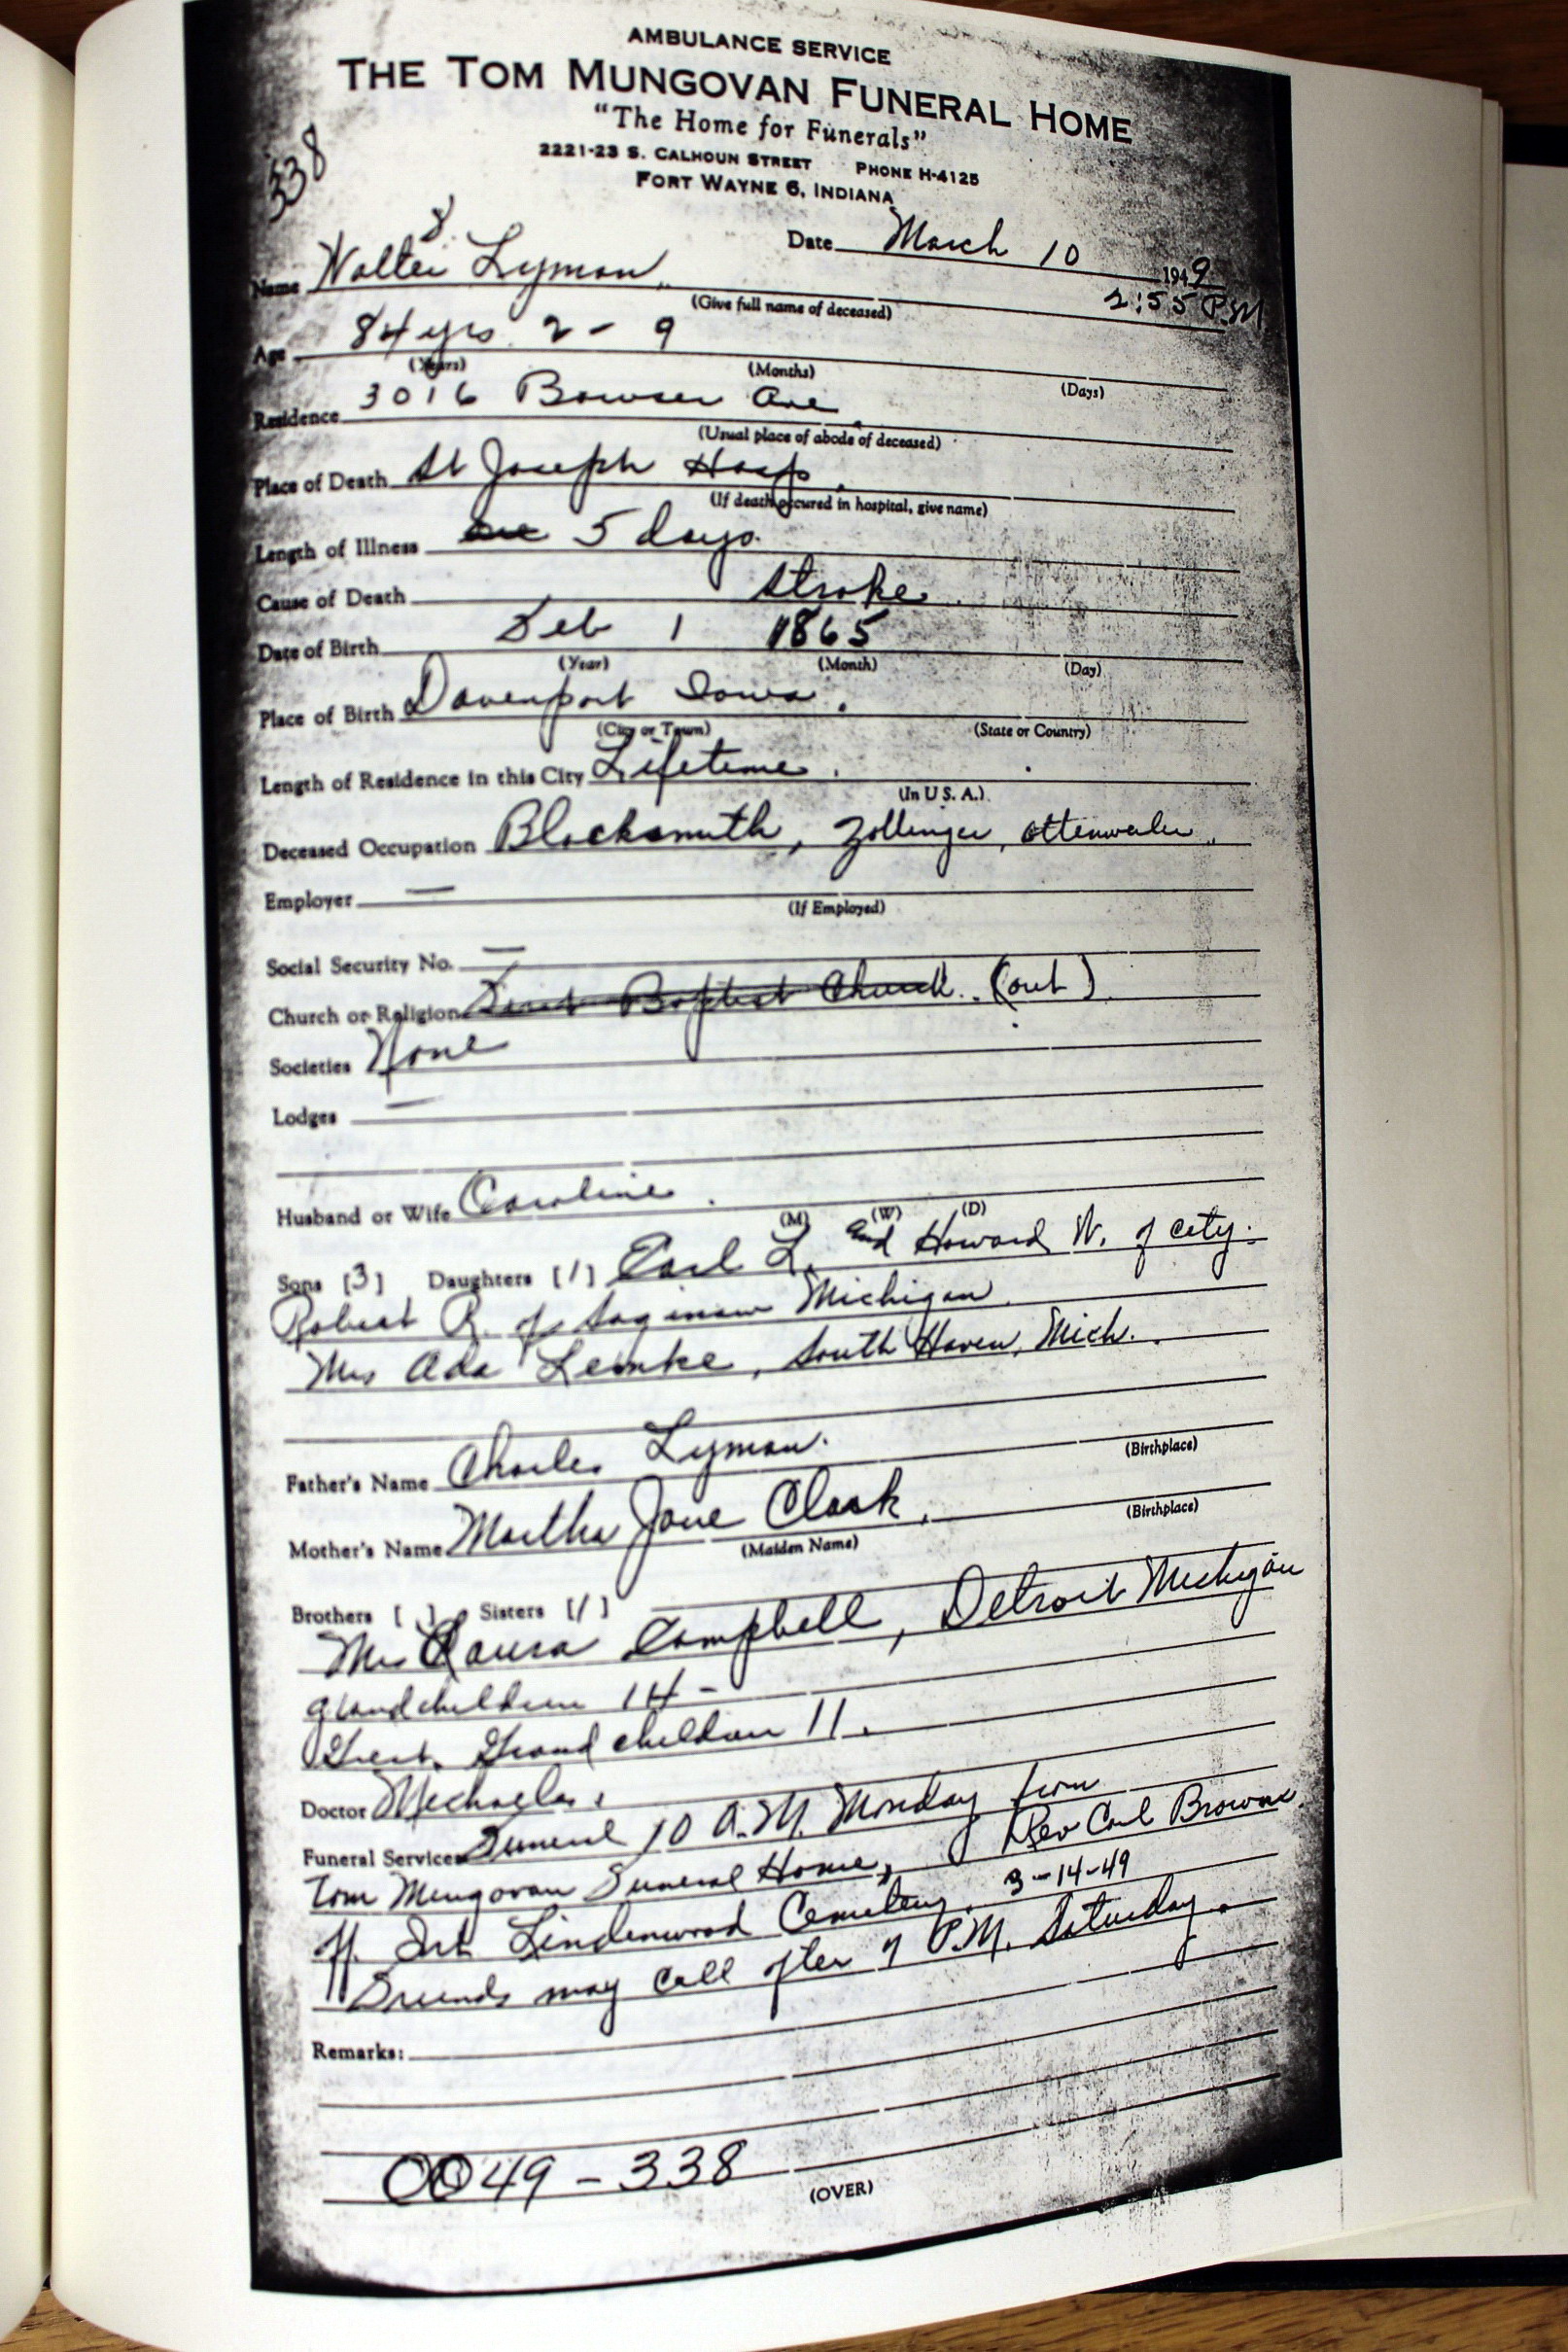 AMBULANCE SERVICE
THE TOM MUNGOVAN FUNERAL HOME
"The Home for Funerals"
2221-23 S. CALHOUN STREET PHONE H-4125
FORT WAYNE 6, INDIANA
338
Date March 10 1949
Name Walter Lyman
(Give full name of deceased) 2:55 P.M
Age 84 yrs 2 - 9
(Years) (Months) (Days)
Residence 3016 Bowser Ave
(Usual place of abode of deceased)
Place of Death St Joseph Hosp.
(If death occured in hospital, give name)
Length of Illness 5 days.
Cause of Death Stroke.
Date of Birth Feb 1 1865
(Year) (Month) (Day)
Place of Birth Davenport Iowa.
(City or Town) (State or Country)
Length of Residence in this City Lifetime.
(In U.S.A.)
Deceased Occupation Blacksmith, Zollinger, Ottenweller.
Employer —
(If Employed)
Social Security No. —
Church or Religion First Baptist Church. (out)
Societies None
Lodges —
Husband or Wife Caroline.
(M) (W) (D)
Sons [3] Daughters [1] Earl L. and Howard W. of city.
Robert R. of Saginaw Michigan.
Mrs Ada Lemke, South Haven, Mich.
Father's Name Charles Lyman.
(Birthplace)
Mother's Name Martha Jane Clark.
(Maiden Name) (Birthplace)
Brothers [ ] Sisters [1]
Mrs Laura Campbell, Detroit Michigan
grandchildren 14 -
Great. Grand children 11.
Doctor Michaels.
Funeral Services Funeral 10 A.M. Monday from
Tom Mungovan Funeral Home, Rev Carl Browne.
Int Lindenwood Cemetery. 3-14-49
Friends may call after 7 P.M. Saturday.
Remarks:
0049-338
(OVER)